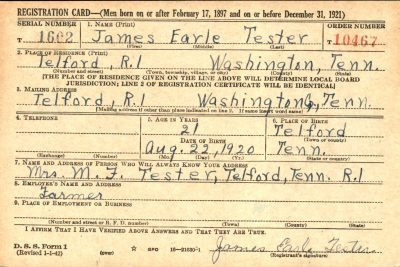 REGISTRATION CARD—(Men born on or after February 17, 1897 and on or before December 31, 1921)
SERIAL NUMBER 1. NAME (Print) ORDER NUMBER
T 1662 James Earle Tester T 10467
(First) (Middle) (Last)
2. PLACE OF RESIDENCE (Print)
Telford, R.1 Washington, Tenn.
(Number and street) (Town, township, village, or city) (County) (State)
[THE PLACE OF RESIDENCE GIVEN ON THE LINE ABOVE WILL DETERMINE LOCAL BOARD
JURISDICTION; LINE 2 OF REGISTRATION CERTIFICATE WILL BE IDENTICAL]
3. MAILING ADDRESS
Telford, R.1 Washington, Tenn.
[Mailing address if other than place indicated on line 2. If same insert word same]
4. TELEPHONE 5. AGE IN YEARS 6. PLACE OF BIRTH
21 Telford
DATE OF BIRTH (Town or county)
Aug. 22, 1920 Tenn.
(Exchange) (Number) (Mo.) (Day) (Yr.) (State or country)
7. NAME AND ADDRESS OF PERSON WHO WILL ALWAYS KNOW YOUR ADDRESS
Mrs. M. F. Tester, Telford, Tenn. R.1
8. EMPLOYER'S NAME AND ADDRESS
Farmer
9. PLACE OF EMPLOYMENT OR BUSINESS
(Number and street or R. F. D. number) (Town) (County) (State)
I AFFIRM THAT I HAVE VERIFIED ABOVE ANSWERS AND THAT THEY ARE TRUE.
D. S. S. Form 1
(Revised 1-1-42) (over) GPO 16—21630-1 James Earle Tester
(Registrant's signature)